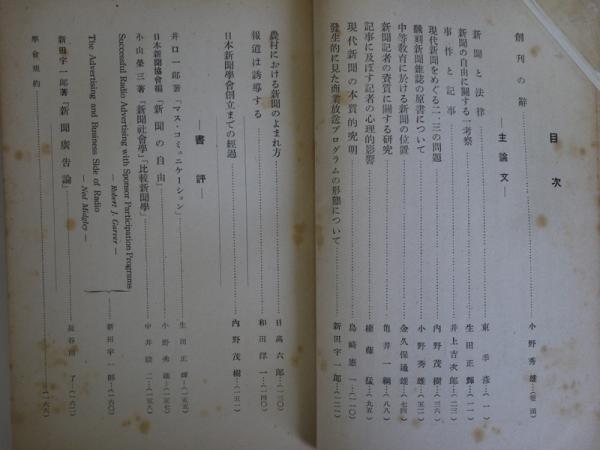 目次
創刊の辞……小野秀雄…(巻頭)
―主論文―
新聞と法律……東季彦…(一)
新聞の自由に関する一考察……生田正輝…(一一)
事件と記事……井上吉次郎…(二三)
現代新聞をめぐる二、三の問題……内野茂樹…(三六)
飜刻新聞雑誌の原書について……小野秀雄…(五二)
中等教育に於ける新聞の位置……金久保通雄…(七四)
新聞記者の資質に関する研究……亀井一綱…(八八)
記事に及ぼす記者の心理的影響……猛…(九五)
現代新聞の本質的究明……島崎憲一…(一一〇)
発生的に見た商業放送プログラムの形態について……新田宇一郎…(一二二)
農村における新聞のよまれ方……日高六郎…(一三〇)
報道は誘導する……和田洋一…(一四〇)
日本新聞學會創立までの経過……内野茂樹…(一五一)
―書評―
井口一郎著「マス・コミュニケーション」……生田正輝…(一五五)
日本新聞協會編「新聞の自由」……小野秀雄…(一五七)
小山榮三著「新聞社會學」「比較新聞學」……中井駿二…(一五八)
Successful Radio Advertising with Sponsor Participation Programs
― Robert J. Garver ―
The Advertising and Business Side of Radio
― Ned Midgley ―
……新田宇一郎…(一六〇)
新田宇一郎著「新聞廣告論」……長谷川了…(一六二)
學會規約……(一六六)